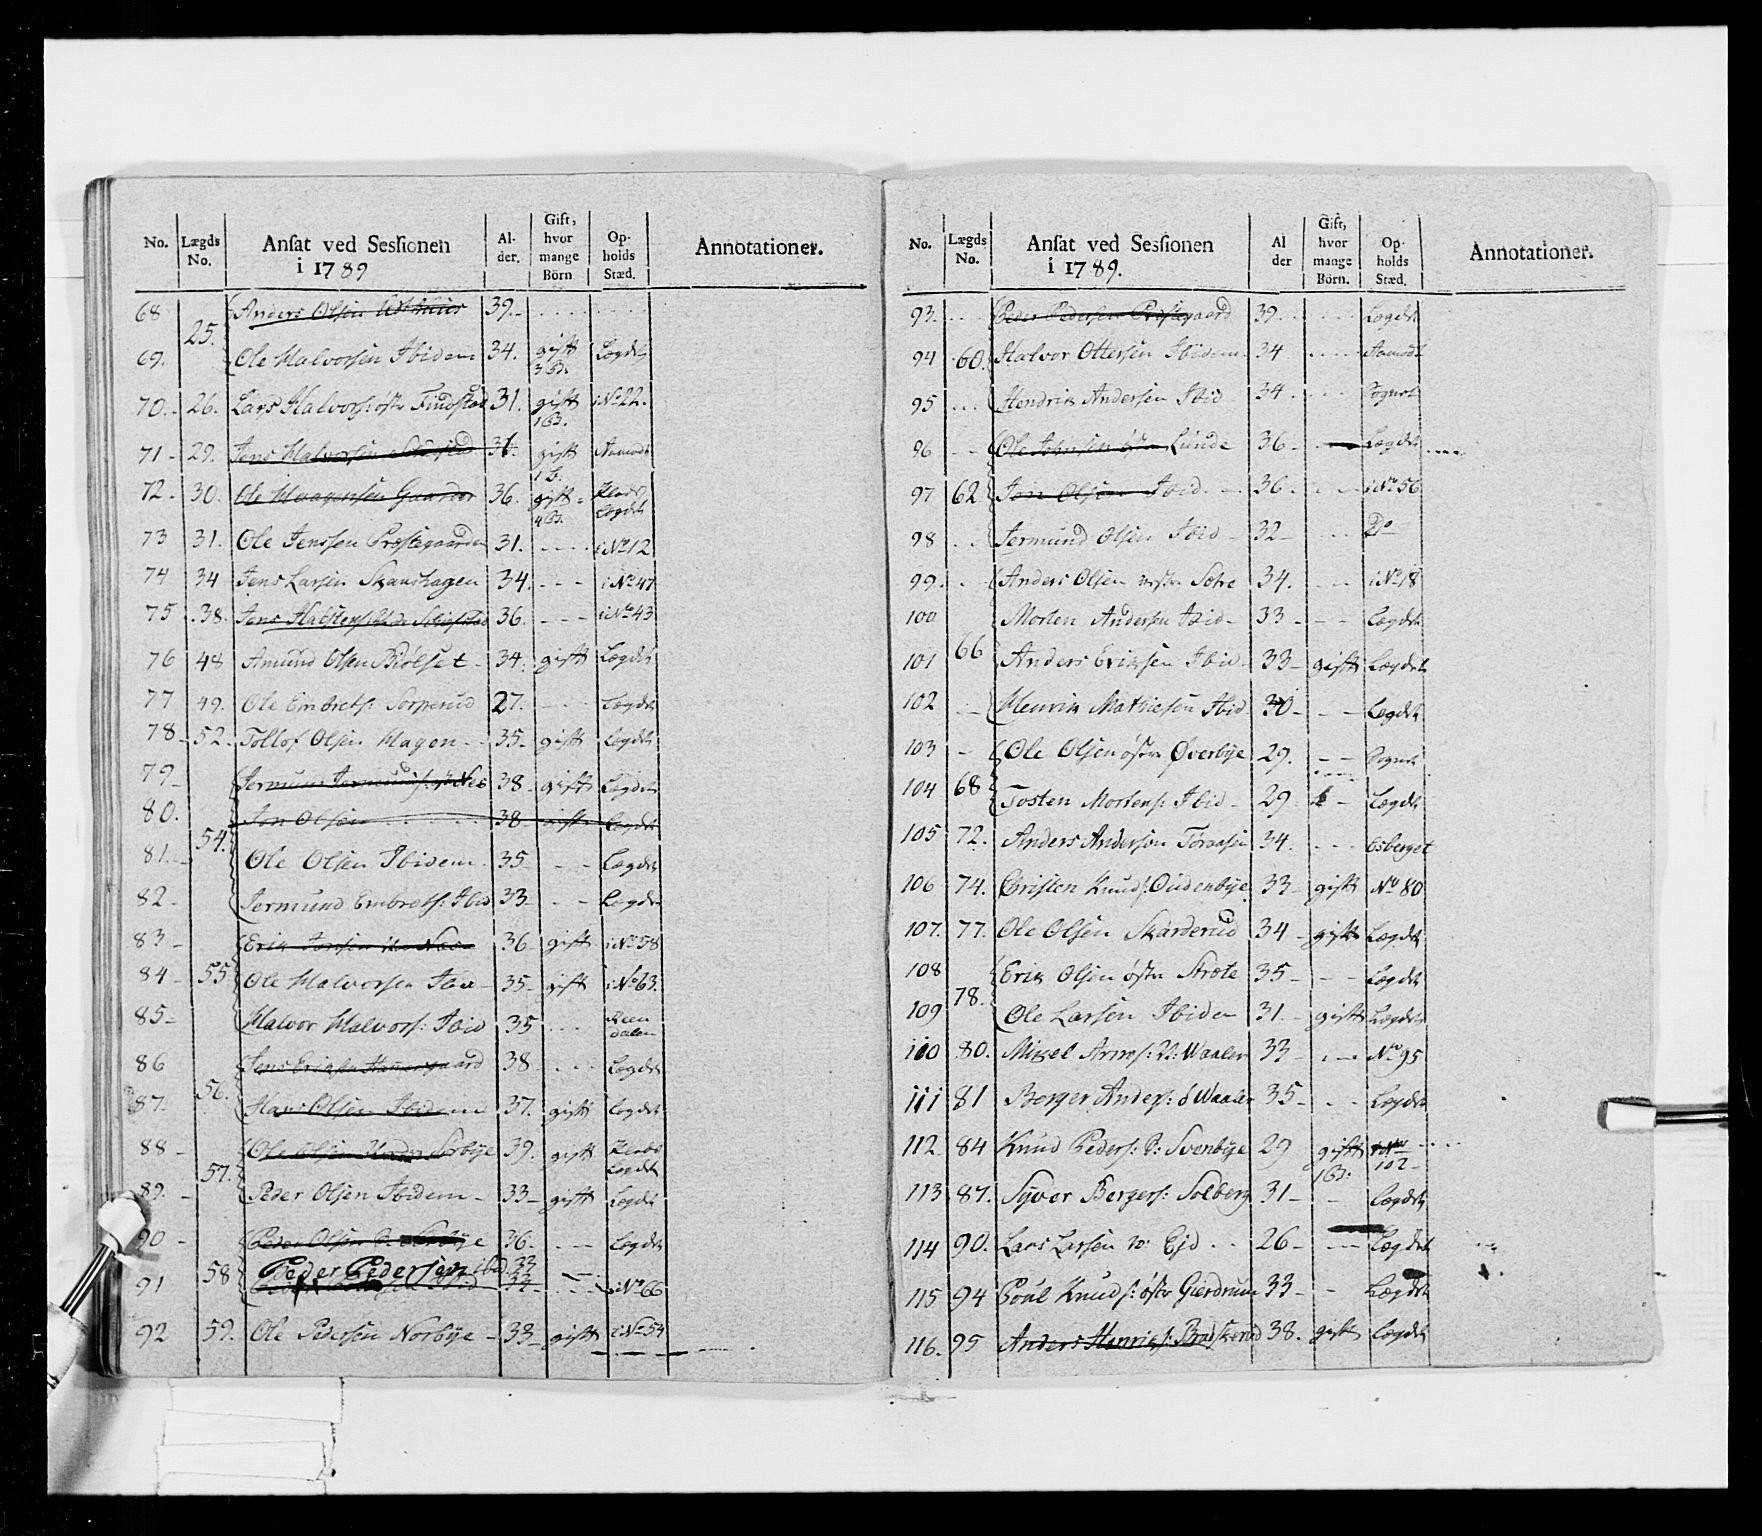 No. Lægds No. Ansat ved Sessionen i 1789 Al-der. Gift, hvor mange Börn Op-holds Stæd. Annotationer.
68 Anders Olsen 39.
25.
69. Ole Halvorsen Ibidem 34. gift 3 B. Lægdet
70. 26. Lars Halvors: østr Findstad 31. gift 1 B. i No 22.
71 29. Jens Halvorsen 31. gift 1 B. Aamodt
72. 30. Ole Haagensen Gaarder 36. gift 4 B. Lægdet
73 31. Ole Jenssen Præstegaarden 31. i No 12
74 34 Jens Larsen Skaushagen 34. i No 47
75 38. Jens 36. i No 43
76 48 Amund Olsen Biølset 34. gift Lægdet
77 49. Ole Embrets: Sorperud 27. Lægdet
78 52. Tollof Olsen Hagen 35. gift Lægdet
79 Jermund 38 gift Lægdet
80. Jon Olsen 38 gift Lægdet
54.
81. Ole Olsen Ibidem 35 Lægdet
82 Jermund Embrets: Ibid 33 Lægdet
83 Erik Jonsen 36 gift i No 58
84 55 Ole Halvorsen 35 gift i No 63.
85 Halvor Halvors: Ibid 35
86 Jens 38 Lægdet
56.
87. Hans Olsen Ibidem 37. gift Lægdet
88 Ole Olsen Sørbye 39. gift Lægdet
57.
89. Peder Olsen Ibidem 33 gift Lægdet
90 Peder Olsen 36. Lægdet
58 Peder Pedersen ibid 33
91 i No 66
92 59. Ole Pedersen Norbye 33 gift i No 54
No. Lægds No. Ansat ved Sessionen i 1789. Al der Gift, hvor mange Börn. Op-holds Stæd. Annotationer.
93. Peder Pedersen Præstegaard 39. Lægdet
94 60. Halvor Ottersen Ibidem 34 Aamodt
95 Hendrik Andersen Ibid 34. Sognet
96 Ole Johnsen Lunde 36 Lægdet
97 62 Jon Olsen Ibid 36. i No 56
98 Jermund Olsen Ibid 32 Do
99. Anders Olsen vestr Sætre 34. i No 18
100 Morten Andersen Ibid 33 Lægdet
66
101 Anders Eriksen Ibid 33 gift Lægdet
102 Henrik Mathiesen Ibid 30 Lægdet
103 Ole Olsen østr Øverbye 29. Sognet
104 68 Tosten Mortens: Ibid 29 Lægdet
105 72. Anders Andersen 34. Osberget
106 74. Christen Knuds: Oudenbye 33 gift No 80
107. 77. Ole Olsen Skarderud 34 gift Lægdet
108 Erik Olsen østr Strøte 35 Lægdet
78.
109 Ole Larsen Ibidem 31. gift Lægdet
110 80. Mikkel Arnes: N: Waaler 33 No 95
111 81 Berger Anders: S Waaler 35 Lægdet
112 84 Knud Peders: S: Svenbye 29 gift 1 B: 102
113 87. Syver Bergers: Solberg 31 Lægdet
114 90. Lars Larsen N: Ejd 26 Lægdet
115 94 Poul Knuds: østr Gierdrum 33 Lægdet
116. 95 Anders Henriks: Braskerud 38. gift Lægdet